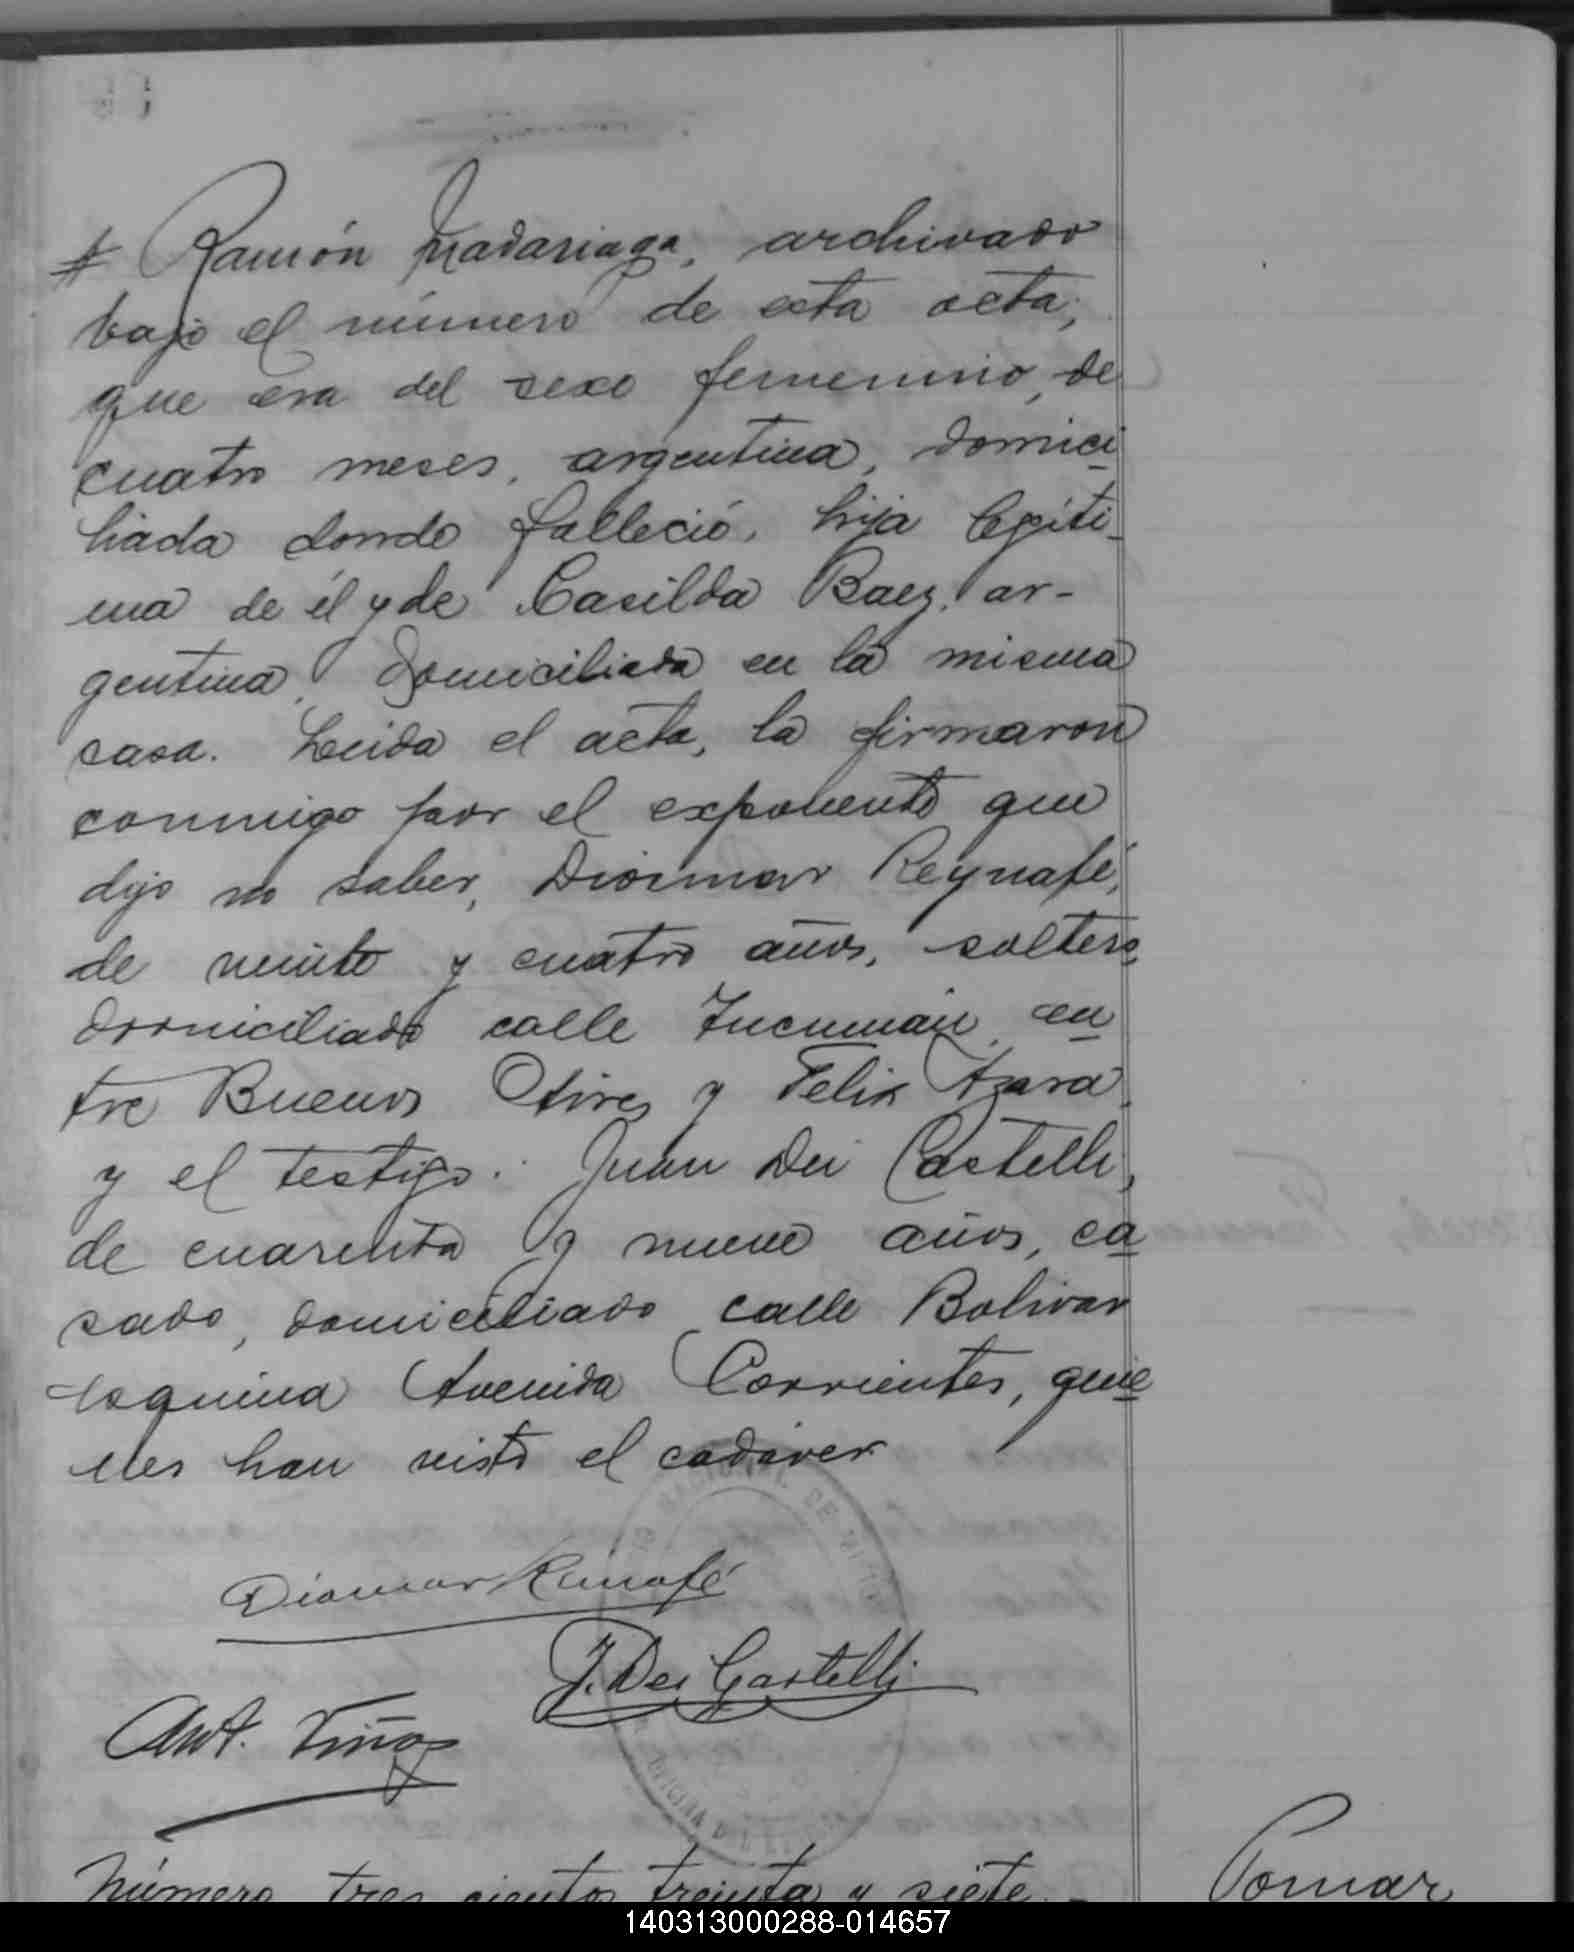 # Ramón Madariaga, archivado
bajo el número de esta acta,
que era del sexo femenino, de
cuatro meses, argentina, domici
liada donde falleció, hija legíti-
ma de él y de Casilda Baez, ar-
gentina, domiciliada en la misma
casa. Leida el acta, la firmaron
conmigo por el exponente que
dijo no saber, Diomar Reynafé,
de veinte y cuatro años, soltero,
domiciliado calle Tucumán en
tre Buenos Aires y Felix Azara,
y el testigo: Juan Dei Castelli,
de cuarenta y nueve años, ca
sado, domiciliado calle Bolivar
esquina Avenida Corrientes, quie
nes han visto el cadáver
Diomar Rinafé
J. Dei Castelli
Ant. Viñas
NACIONAL DE
OFICINA
Número tres cientos treinta y siete -
Pomar
140313000288-014657